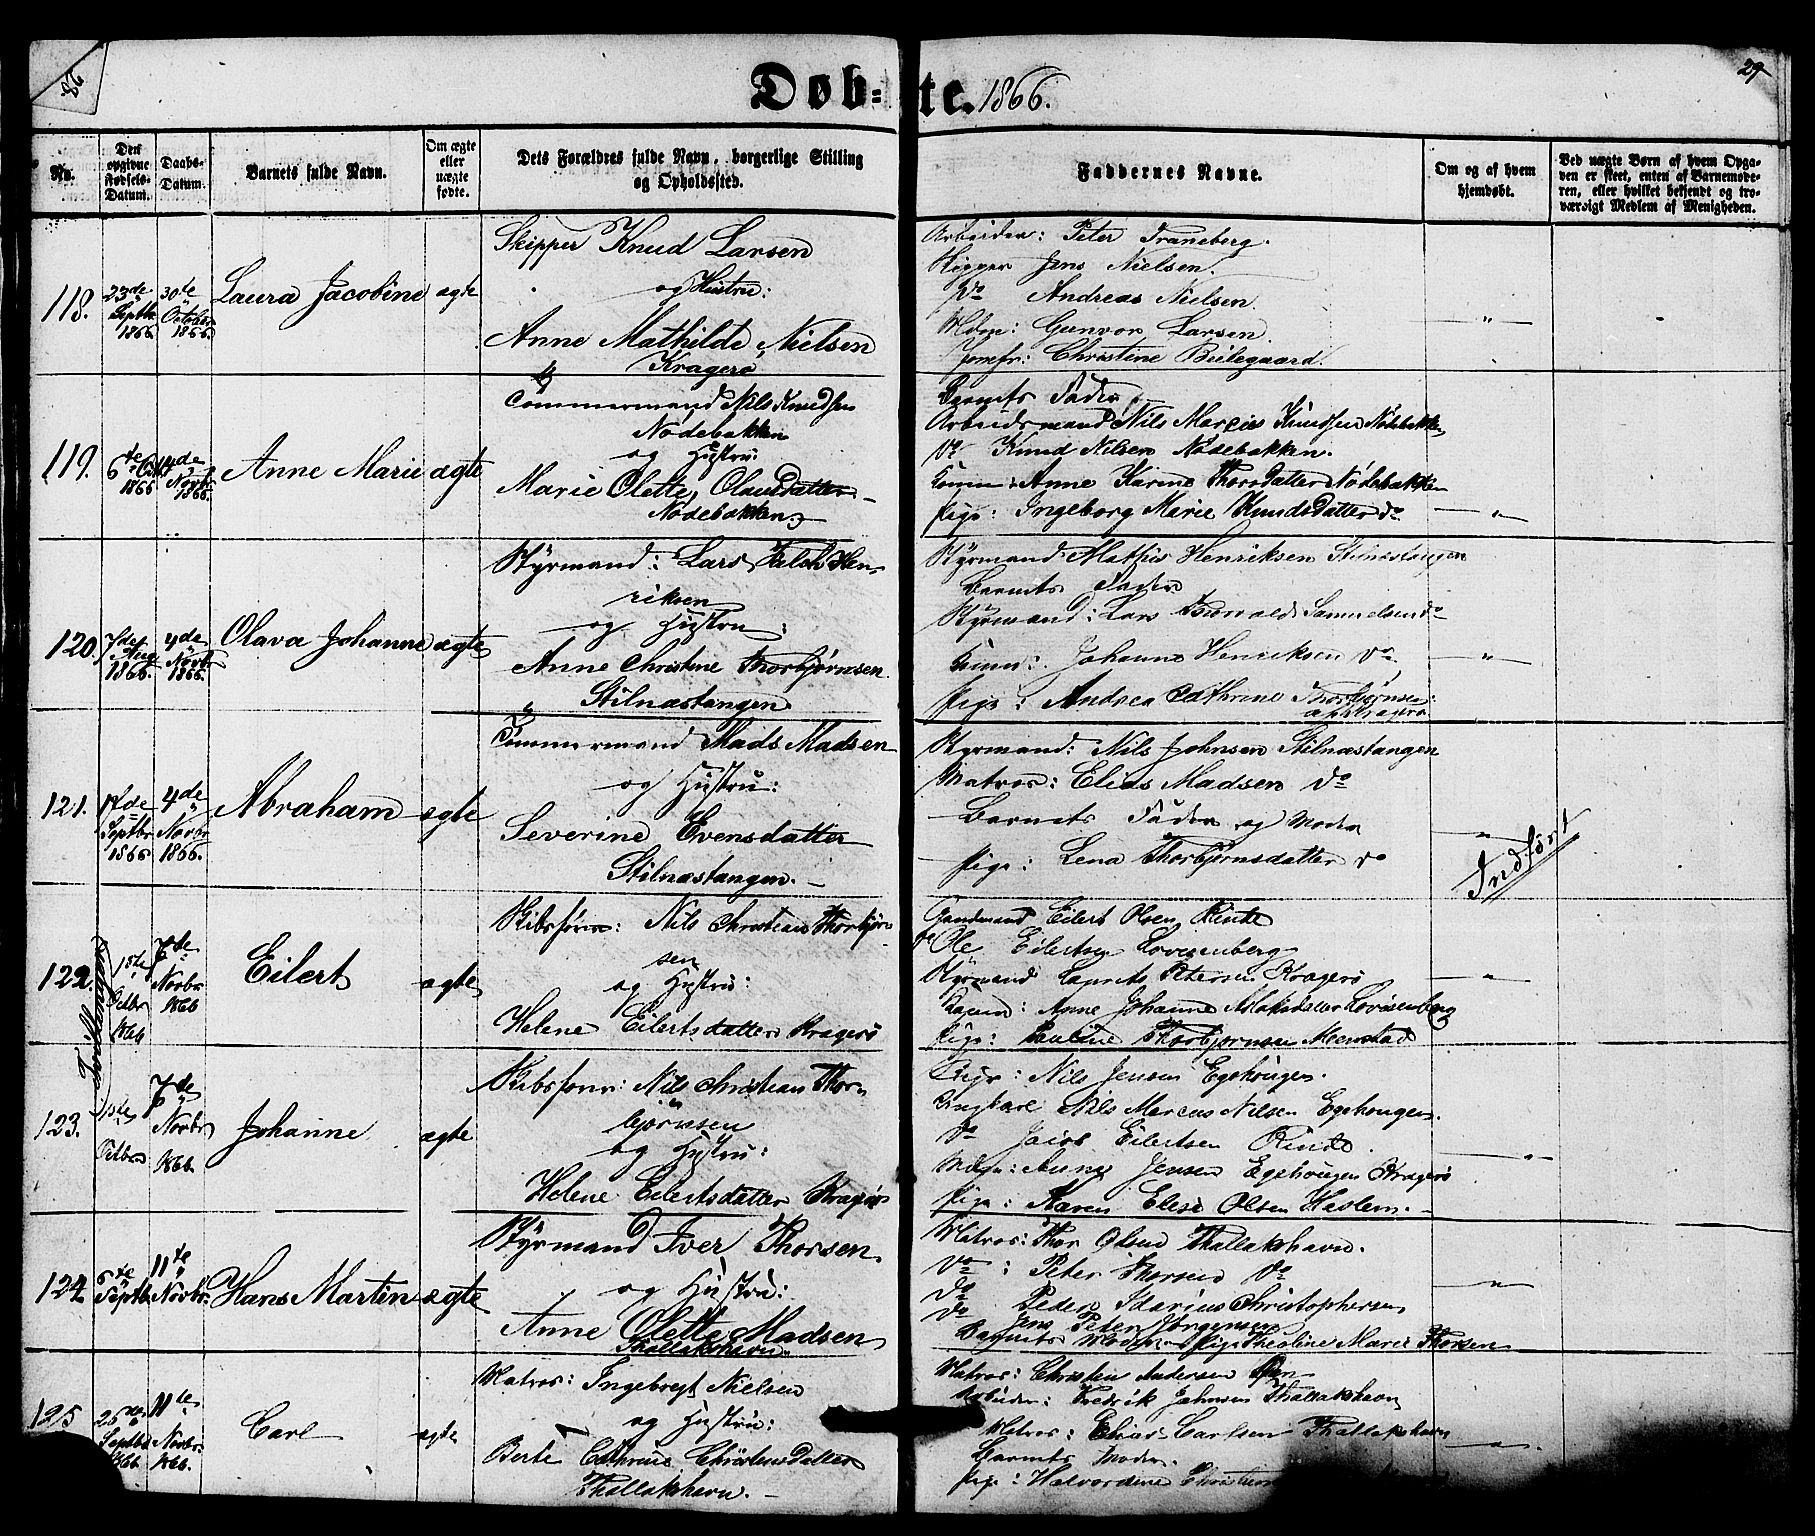 Døb=te. 1866.
29
No.
Den opgivne Fødsels-Datum.
Daabs-Datum.
Barnets fulde Navn.
Om ægte eller uægte fødte.
Dets Forældres fulde Navn, borgerlige Stilling og Opholdssted.
Faddernes Navne.
Om og af hvem hjemdøbt.
Ved uægte Børn af hvem Opga-
ven er skeet, enten af Barnemode-
ren, eller hvilket bekjendt og tro-
værdigt Medlem af Menigheden.
118.
23de Septbr 1866
30te October 1866.
Laura Jacobine
ægte
Skipper Knud Larsen
og Hustru:
Anne Mathilde Nielsen
Kragerø
Arbeider: Peter Traneberg.
Skipper Jens Nielsen.
Do Andreas Nielsen.
Mdm: Gunvor Larsen.
Jomfr: Christine Beilegaard.
119.
6te Octb 1866
4de Novbr 1866.
Anne Marie
ægte
Tømmermand Nils Knudsen
Nødebakken
og Hustru
Marie Olette Olausdatter
Nødebakken.
Barnets Fader
Arbeidsmand Nils Marcius Knudsen Nødebakken
Do Knud Nilsen Nødebakken.
Konen: Anne Karine Thorsdatter Nødebakken
Pige: Ingeborg Marie Knudsdatter do
120.
7de Aug 1866.
4de Novbr 1866.
Olava Johanne
ægte
Styrmand: Lars Falck Hen-
riksen
og Hustru:
Anne Christine Thorbjørnsen
Stilnæstangen
Styrmand Mathis Henriksen Stilnæstangen
Barnets Fader
Styrmand: Lars Samuelsen do
Konen: Johanne Henriksen Do
Pige: Andrea Cathrine Thorbjørnsen
121.
17de Septbr 1866
4de Novbr 1866.
Abraham
ægte
Tømmermand Mads Madsen
og Hustru:
Severine Evensdatter
Stilnæstangen.
Styrmand: Nils Johnsen Stilnæstangen
Matros: Elias Madsen Do
Barnets Fader og Moder
Pige: Lena Thorbjørnsdatter do
Indført
122.
Tvillinger
1ste Octbr 1866
7de Novbr 1866
Eilert
ægte
Skibsfører: Nils Christian Thorbjørn
sen
og Hustru:
Helene Eilertsdatter Kragerø
Gaardmand Eilert Olsen Rinde
do Ole Eilertsen Lovisenberg
Styrmand Laurits Petersen Kragerø
Konen: Anne Johanne Aslaksdatter Lovisenberg
Pige: Pauline Thorbjørnsen Menstad
123.
1ste Octbr
7de Novbr 1866.
Johanne
ægte
Skibsfører: Nils Christian Thor-
bjørnsen
og Hustru:
Helene Eilertsdatter Kragerø
Nils Jensen Egehougen.
Ungkarl Nils Marcus Nilsen Egehougen.
Do Jacob Eilertsen Rinde.
Mdm: Anne Jensen Egehougen Kragerø
Pige: Karen Elise Olsen Haslem.
124.
6te Septb
11te Novbr.
Hans Martin
ægte
Styrmand Iver Thorsen
og Hustru:
Anne Olette Madsen
Thallakshavn
Matros: Thor Olsen Thallakshavn.
Do: Peter Thorsen Do
Do Peder Idarius Christophersen
Do Jens Peter Jørgensen
Barnets Moder Pige Theoline Marie Thorsen
125
26de Septbr 1866
11te Novbr 1866.
Carl
ægte
Matros: Ingebregt Nielsen
og Hustru:
Berte Cathrine Christensdatter
Thallakshavn.
Matros: Christen Andersen
Arbeider: Fredrik Jahnsen Thallakshavn
Matros: Elias Carlsen Thallakshavn
Barnets Moder.
Pige: Halvordine